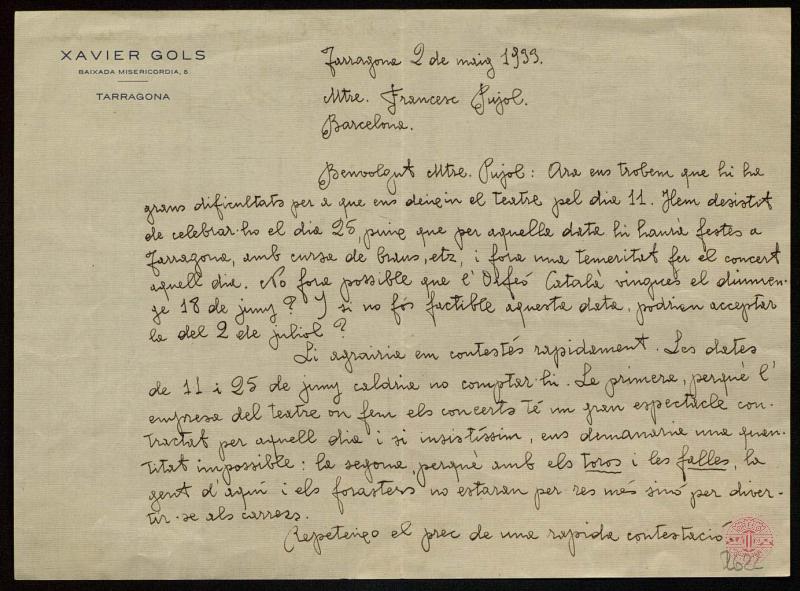 XAVIER GOLS
BAIXADA MISERICORDIA, 5
TARRAGONA
Tarragona 2 de maig 1933.
Mtre. Francesc Pujol.
Barcelona.
Benvolgut Mtre. Pujol: Ara ens trobem que hi ha
grans dificultats per a que ens deixin el teatre pel dia 11. Hem desistit
de celebrar-ho el dia 25, puix que per aquella data hi haurà festes a
Tarragona, amb cursa de braus, etz, i fora una temeritat fer el concert
aquell dia. No fora possible que l'Orfeó Català vingues el diumen-
ge 18 de juny? Y si no fós factible aquesta data, podrien acceptar
la del 2 de juliol?
Li agrairia em contestés rapidament. Les dates
de 11 i 25 de juny caldria no comptar-hi. La primera, perquè l'
empresa del teatre on fem els concerts té un gran espectacle con-
tractat per aquell dia i si insistíssim, ens demanaria una quan-
titat impossible: la segona, perquè amb els toros i les falles, la
gent d'aquí i els forasters no estaran per res més sinó per diver-
tir-se als carrers.
Repeteixo el prec de una rapida contestació